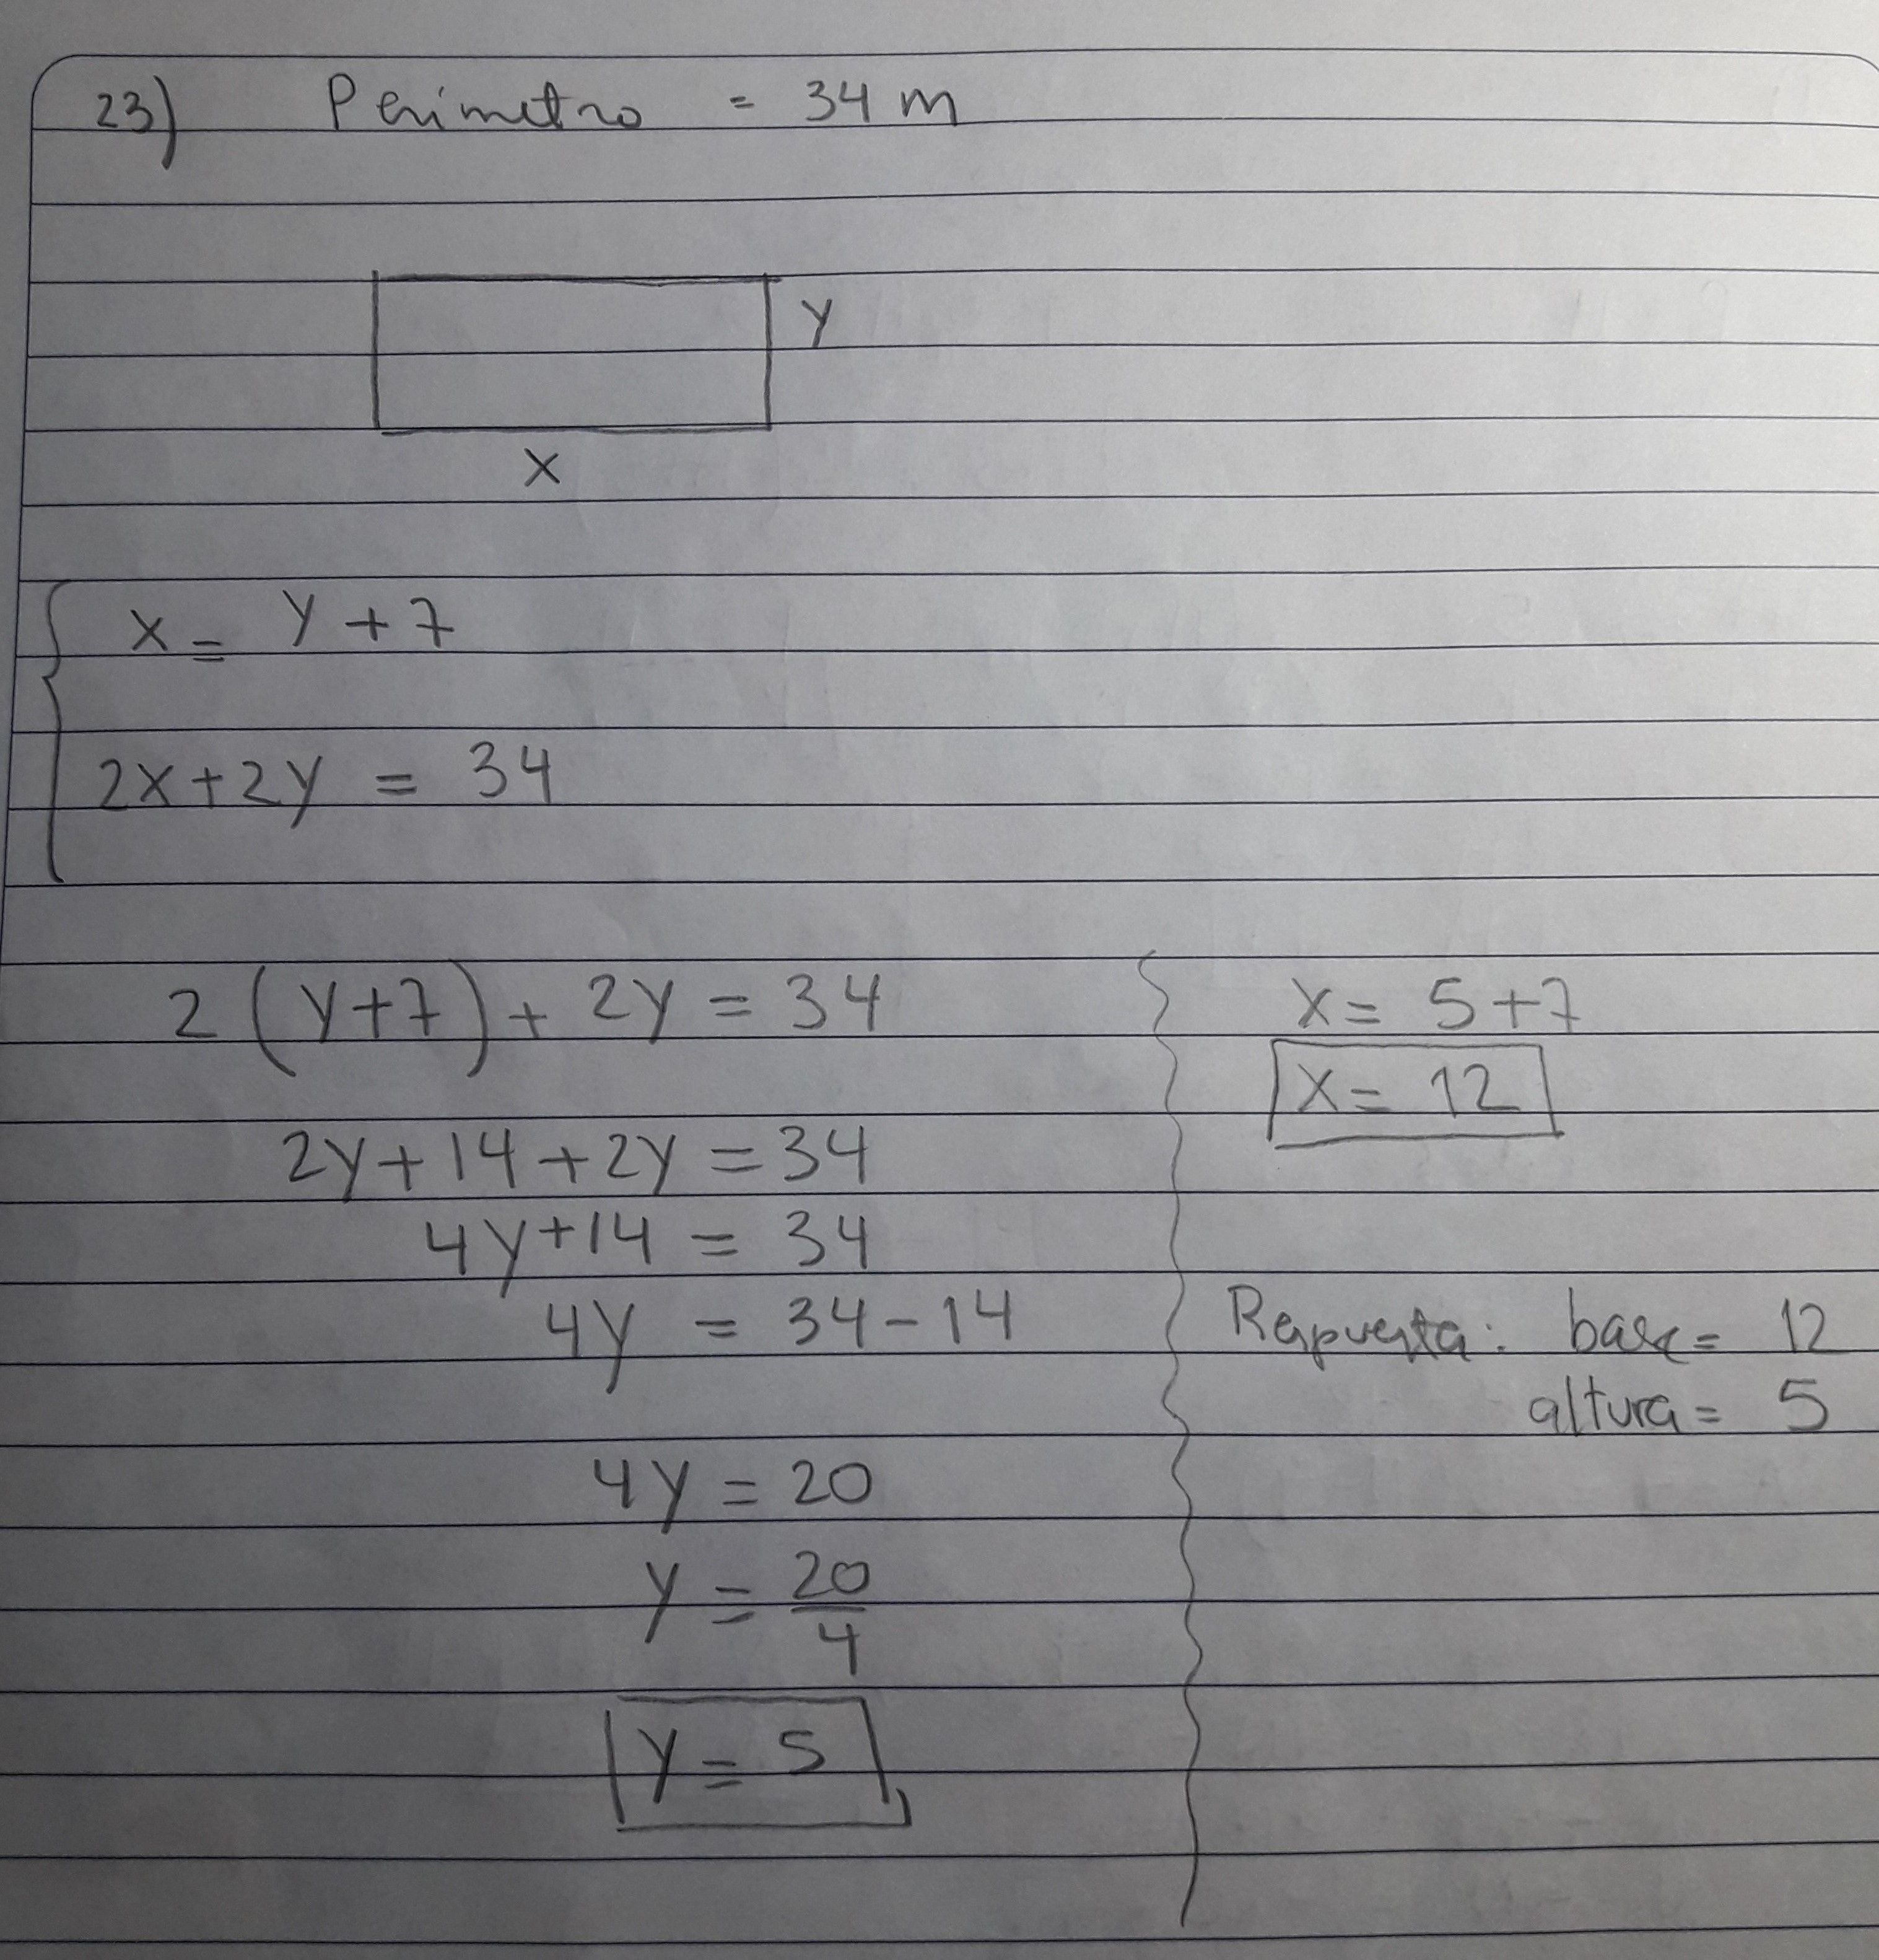 23) Perimetro = 34 m
y
x
x = y + 7
2x + 2y = 34
2 (y+7) + 2y = 34
2y + 14 + 2y = 34
4y + 14 = 34
4y = 34 - 14
4y = 20
y = 20/4
y = 5
x = 5+7
x = 12
Respuesta: base = 12
altura = 5